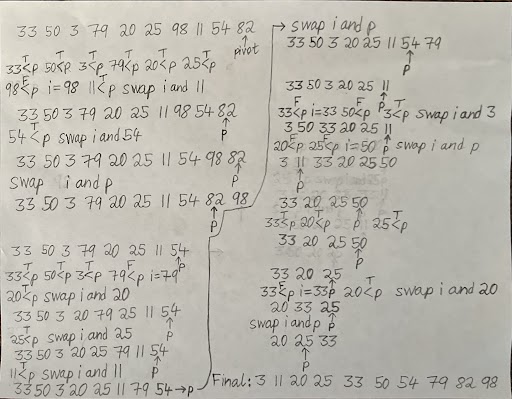 33 50 3 79 20 25 98 11 54 82
↑
pivot
33<p T 50<p T 3<p T 79<p T 20<p T 25<p T
98<p F i=98 11<p T swap i and 11
33 50 3 79 20 25 11 98 54 82
↑
p
54<p T swap i and 54
33 50 3 79 20 25 11 54 98 82
↑
p
swap i and p
33 50 3 79 20 25 11 54 82 98
↑
p
33 50 3 79 20 25 11 54
↑
p
33<p T 50<p T 3<p T 79<p F i=79
20<p T swap i and 20
33 50 3 20 79 25 11 54
↑
p
25<p T swap i and 25
33 50 3 20 25 79 11 54
↑
p
11<p T swap i and 11
33 50 3 20 25 11 79 54 → p
→ swap i and p
33 50 3 20 25 11 54 79
↑
p
33 50 3 20 25 11
↑
p
33<p F i=33 50<p F 3<p T swap i and 3
3 50 33 20 25 11
↑
p
20<p F 25<p F i=50 swap i and p
3 11 33 20 25 50
↑
p
33 20 25 50
↑
p
33<p T 20<p T 25<p T
33 20 25 50
↑
p
33 20 25
↑
p
33<p F i=33 20<p T swap i and 20
20 33 25
↑
p
swap i and p
20 25 33
↑
p
Final: 3 11 20 25 33 50 54 79 82 98